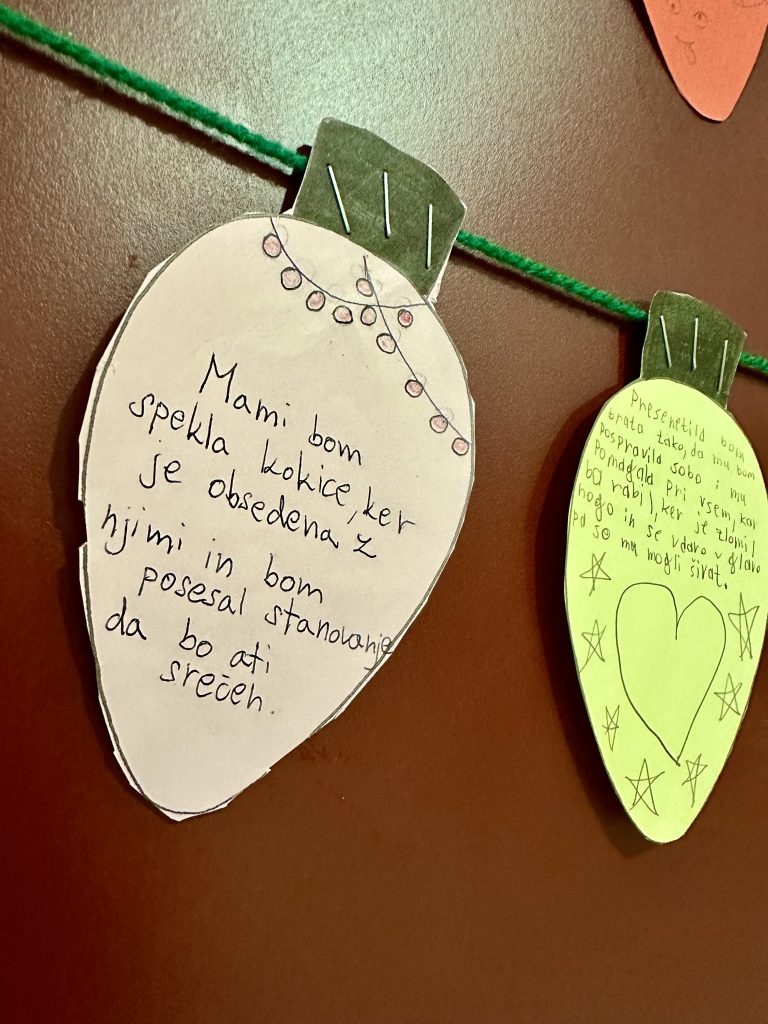 Mami bom
spekla kokice, ker
je obsedena z
njimi in bom
posesal stanovanje
da bo ati
srečen.
Presenetila bom
brata tako, da mu bom
pospravila sobo i mu
pomagala pri vsem, kar
bo rabil, ker je zlomil
nogo in se vdaro v glavo
pa so mu mogli šivat.